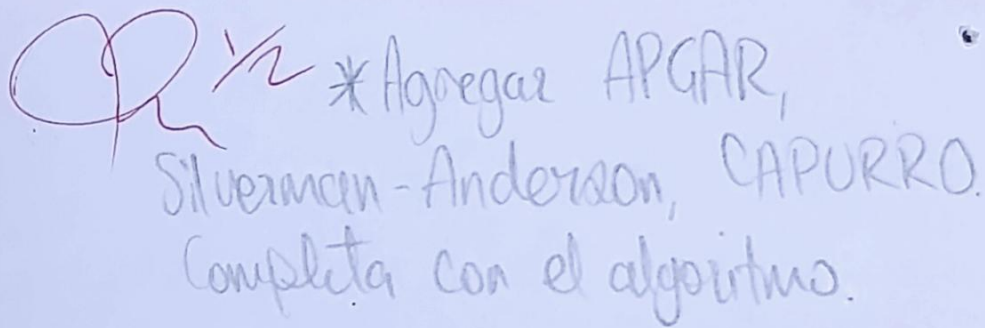 1/2 *Agregar APGAR,
Silverman-Anderson, CAPURRO.
Completa con el algoritmo.